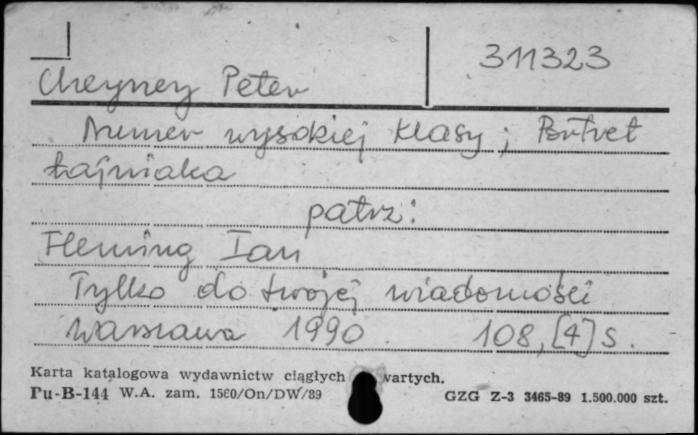 311323
Cheyney Peter
Numer wysokiej klasy; Portret
łajniaka
patrz:
Fleming Ian
Tylko do twojej wiadomości
Warszawa 1990. 108,[4]s.
Karta katalogowa wydawnictw ciągłych wartych.
Pu-B-144 W.A. zam. 1560/On/DW/89 GZG Z-3 3465-89 1.500.000 szt.